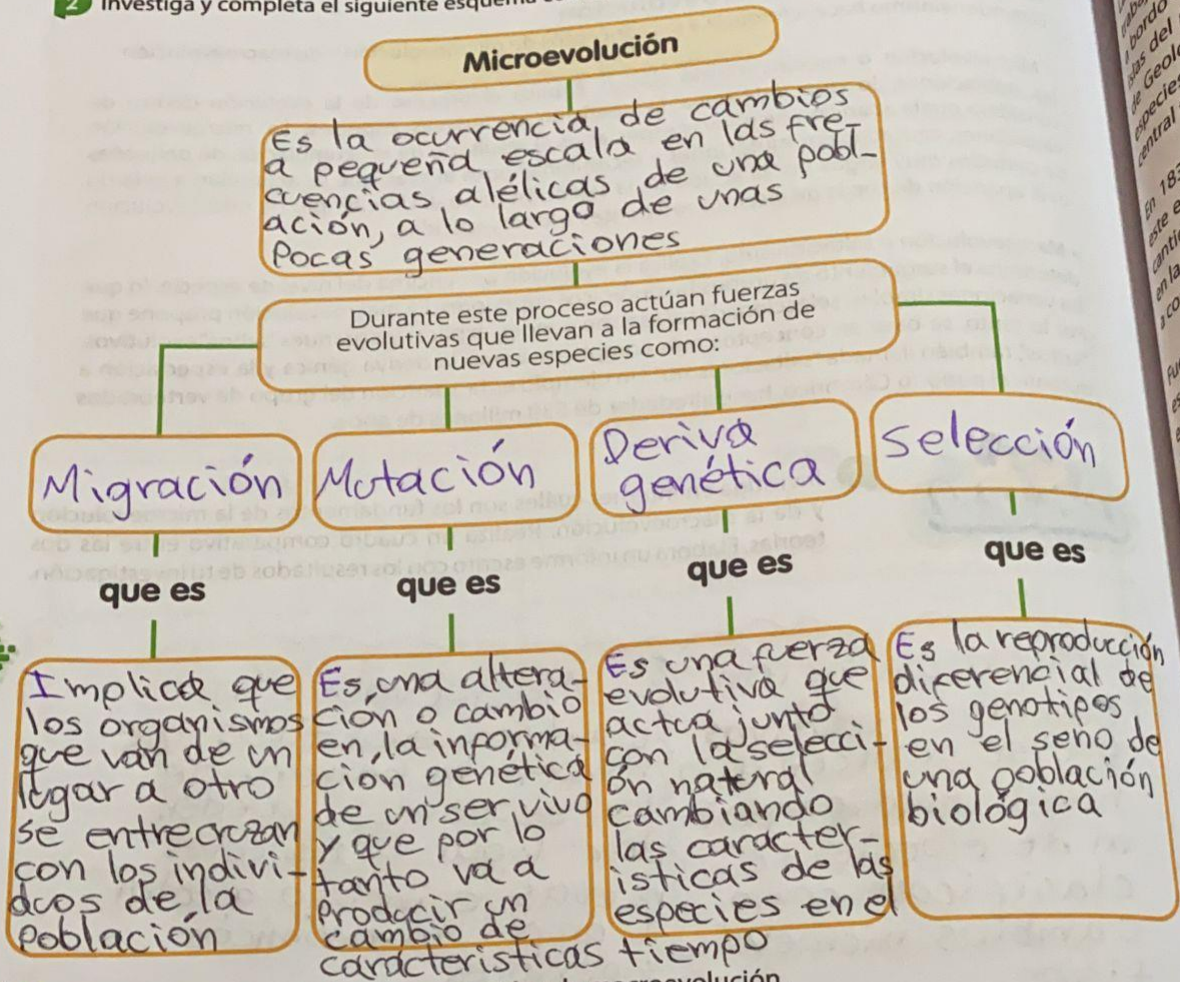 2 Investiga y completa el siguiente
Microevolución
Es la ocurrencia, de cambios
a pequeña escala en las fre-
cuencias alélicas de una pobl-
ación, a lo largo de unas
Pocas generaciones
Durante este proceso actúan fuerzas
evolutivas que llevan a la formación de
nuevas especies como:
Migración
Mutación
Deriva
genética
Selección
que es
que es
que es
que es
Implica que
los organismos
que van de un
lugar a otro
se entrecruzan
con los indivi-
duos de la
población
Es una altera-
ción o cambio
en la informa-
ción genética
de un ser vivo
y que por lo
tanto va a
Producir un
cambio de
características
Es una fuerza
evolutiva que
actua junto
con la selecci-
ón natural
cambiando
las caracter-
isticas de las
especies en el
tiempo
Es la reproducción
diferencial de
los genotipos
en el seno de
una población
biológica
bordo
islas del
de Geol
especie
central
En 183
este e
canti
en la
a co